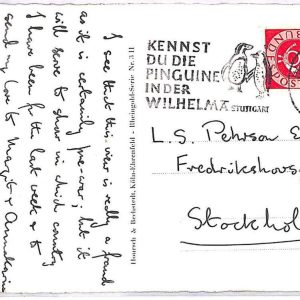 I see that this view is really a fraud
as it is certainly pre-war; but it
will serve to show in which country
I have been for the last week & to
send my love to Margit & Annakarin
Hoursch & Bechstedt, Köln-Ehrenfeld - Rheingold-Serie Nr. 311
KENNST
DU DIE
PINGUINE
IN DER
WILHELMA STUTTGART
L. S. Pehrson E
Fredrikshov
Stockhol